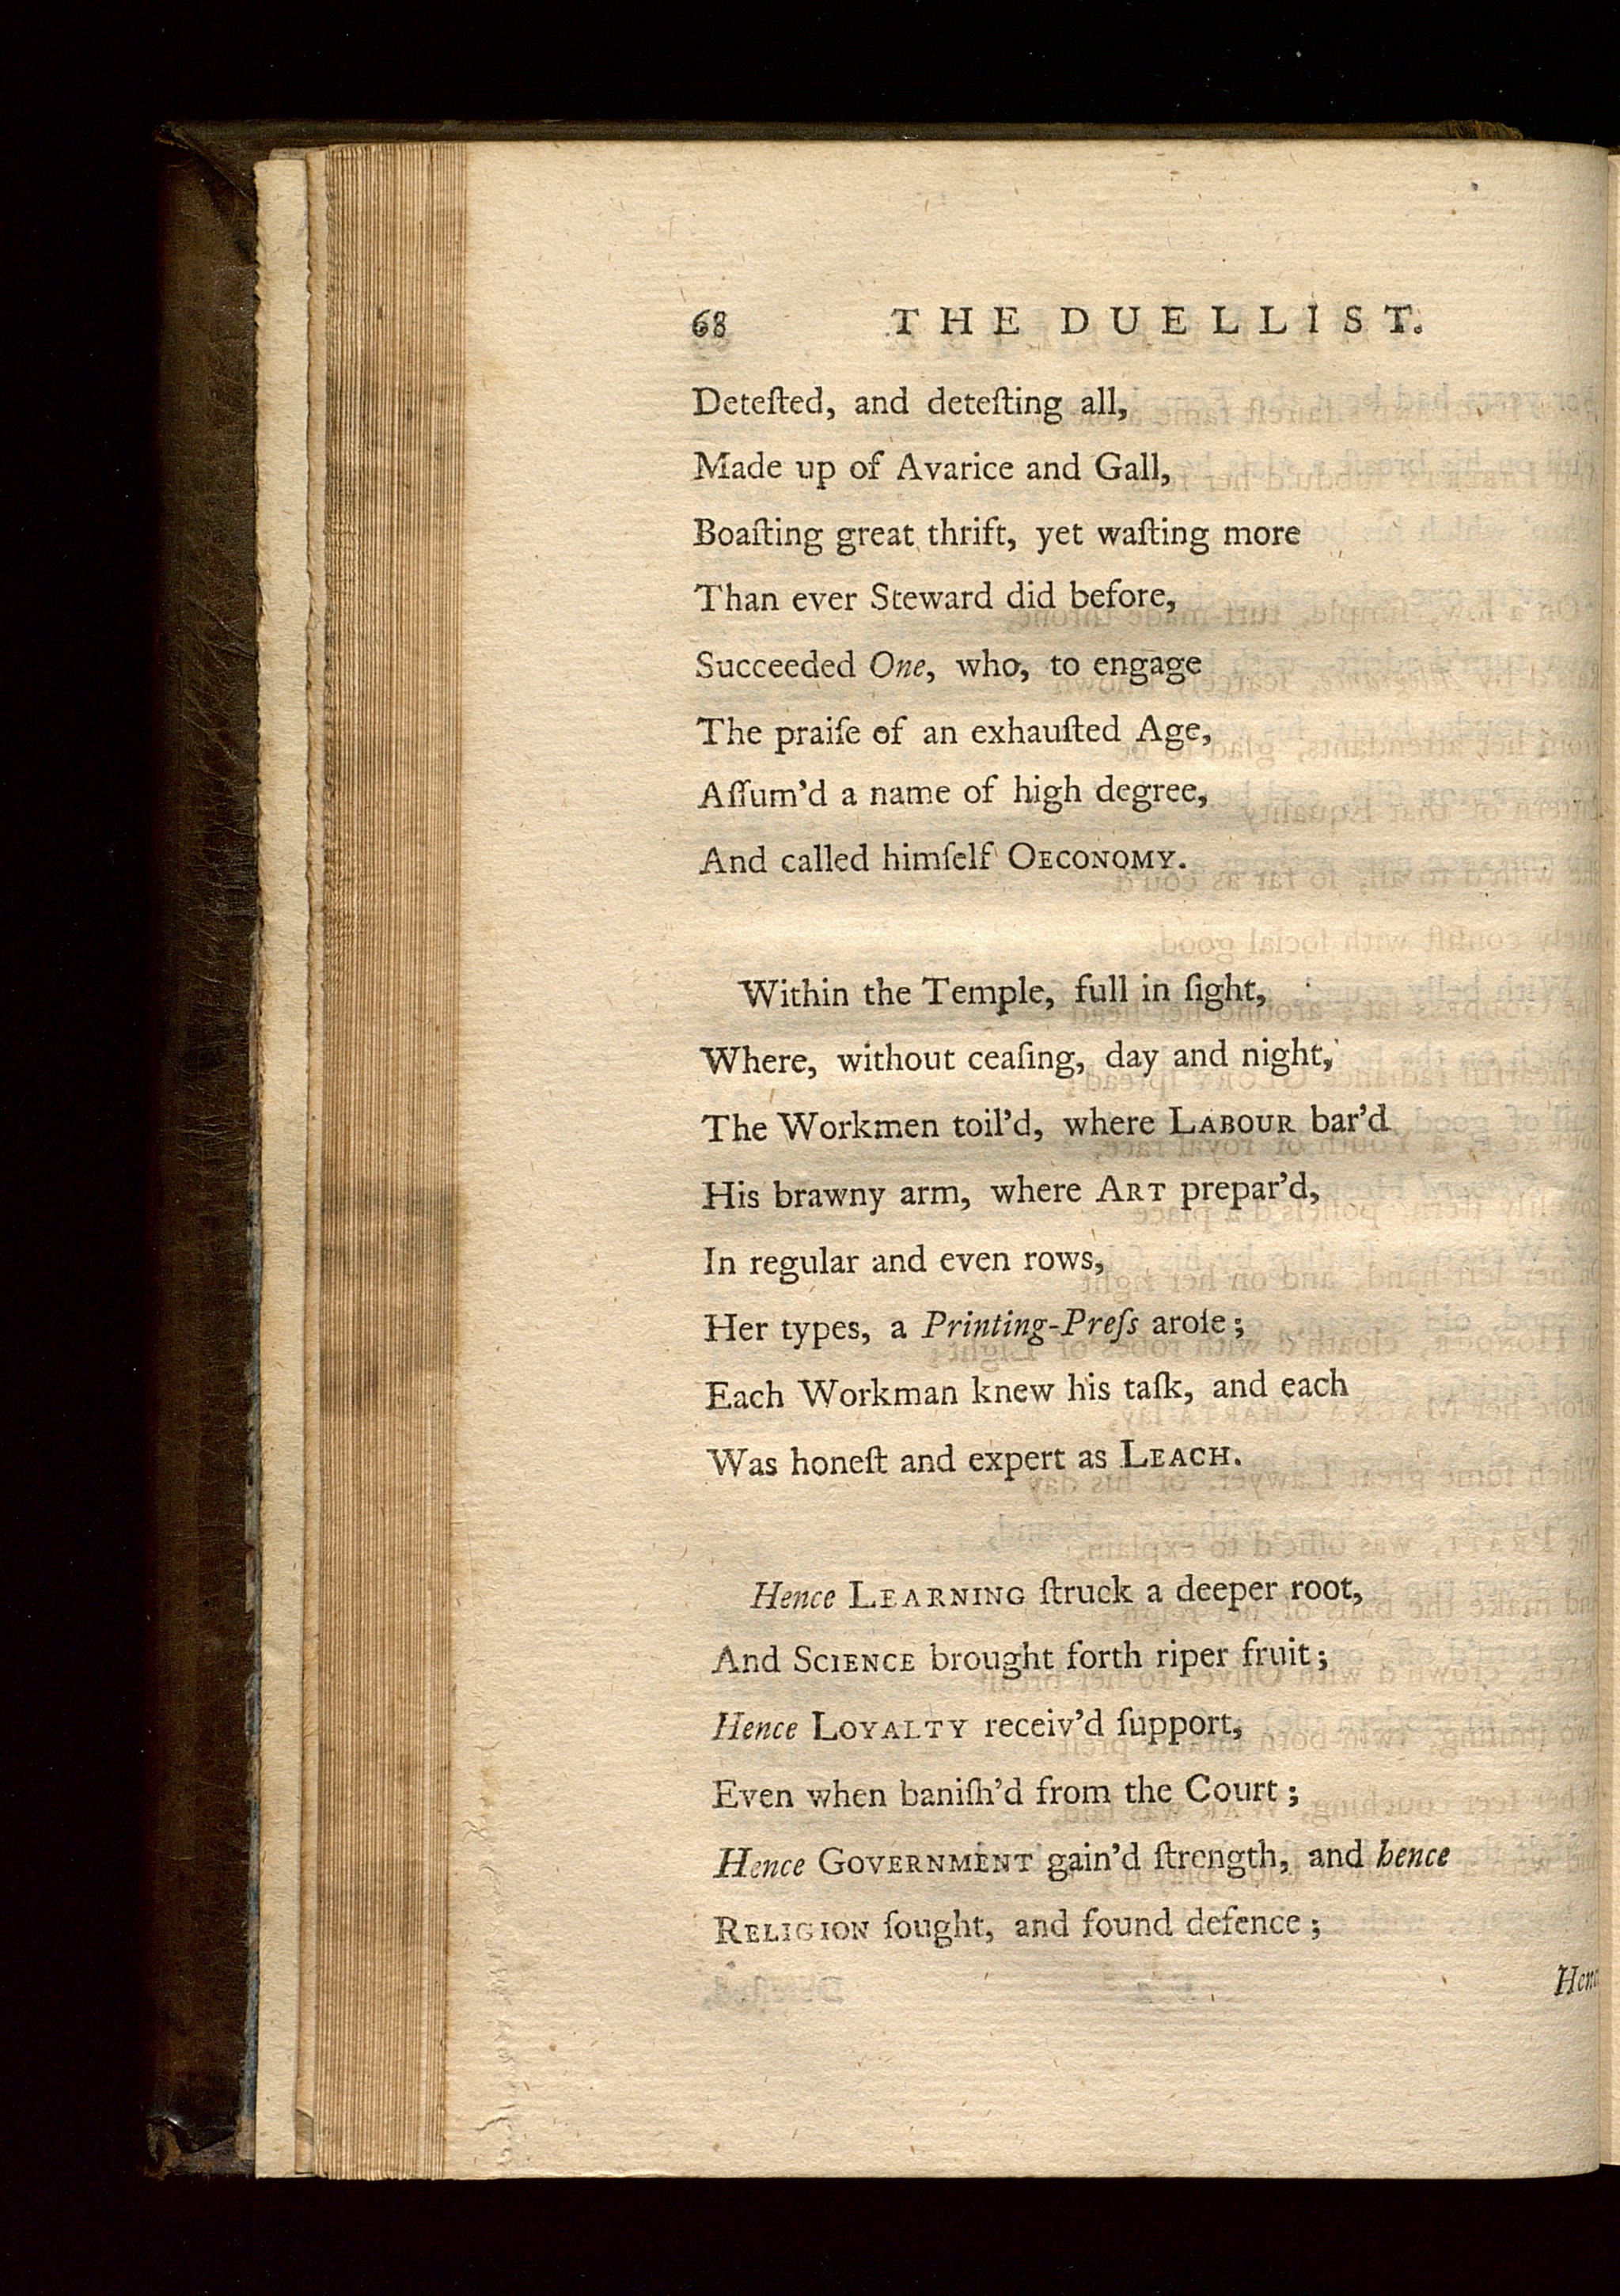 68 THE DUELLIST.
Deteſted, and deteſting all,
Made up of Avarice and Gall,
Boaſting great thrift, yet waſting more
Than ever Steward did before,
Succeeded One, who, to engage
The praiſe of an exhauſted Age,
Aſſum'd a name of high degree,
And called himſelf OECONOMY.
Within the Temple, full in ſight,
Where, without ceaſing, day and night,
The Workmen toil'd, where LABOUR bar'd
His brawny arm, where ART prepar'd,
In regular and even rows,
Her types, a Printing-Preſs aroſe;
Each Workman knew his taſk, and each
Was honeſt and expert as LEACH.
Hence LEARNING ſtruck a deeper root,
And SCIENCE brought forth riper fruit;
Hence LOYALTY receiv'd ſupport,
Even when baniſh'd from the Court;
Hence GOVERNMENT gain'd ſtrength, and hence
RELIGION ſought, and found defence;